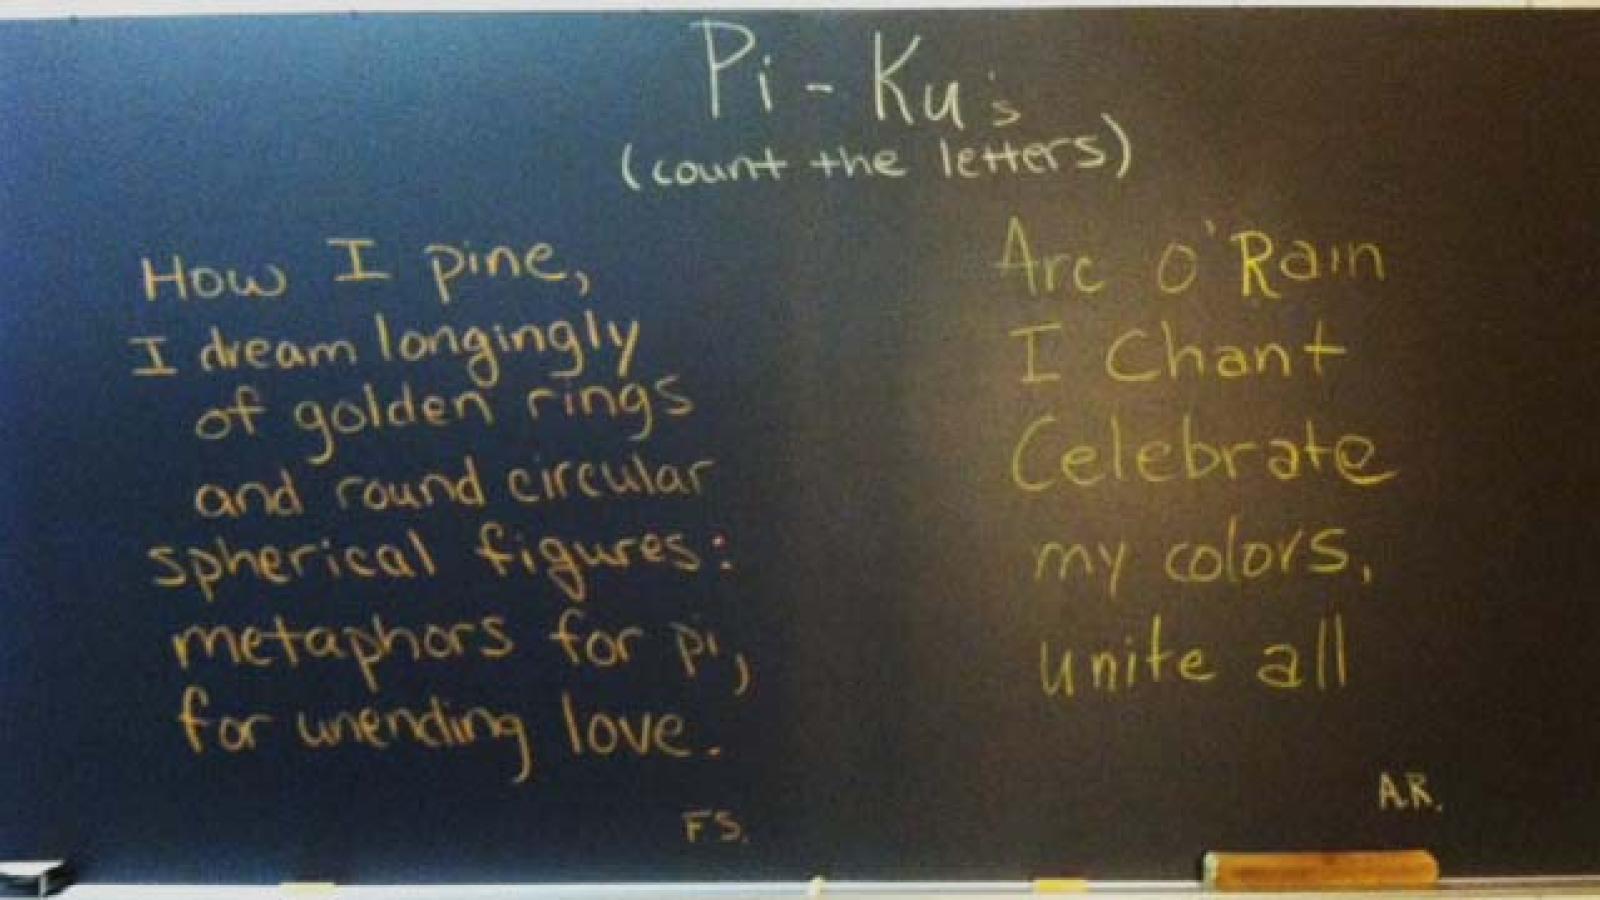 Pi-Ku's
(count the letters)
How I pine,
I dream longingly
of golden rings
and round circular
spherical figures:
metaphors for pi,
for unending love.
FS.
Arc o'Rain
I Chant
Celebrate
my colors,
unite all
A.R.